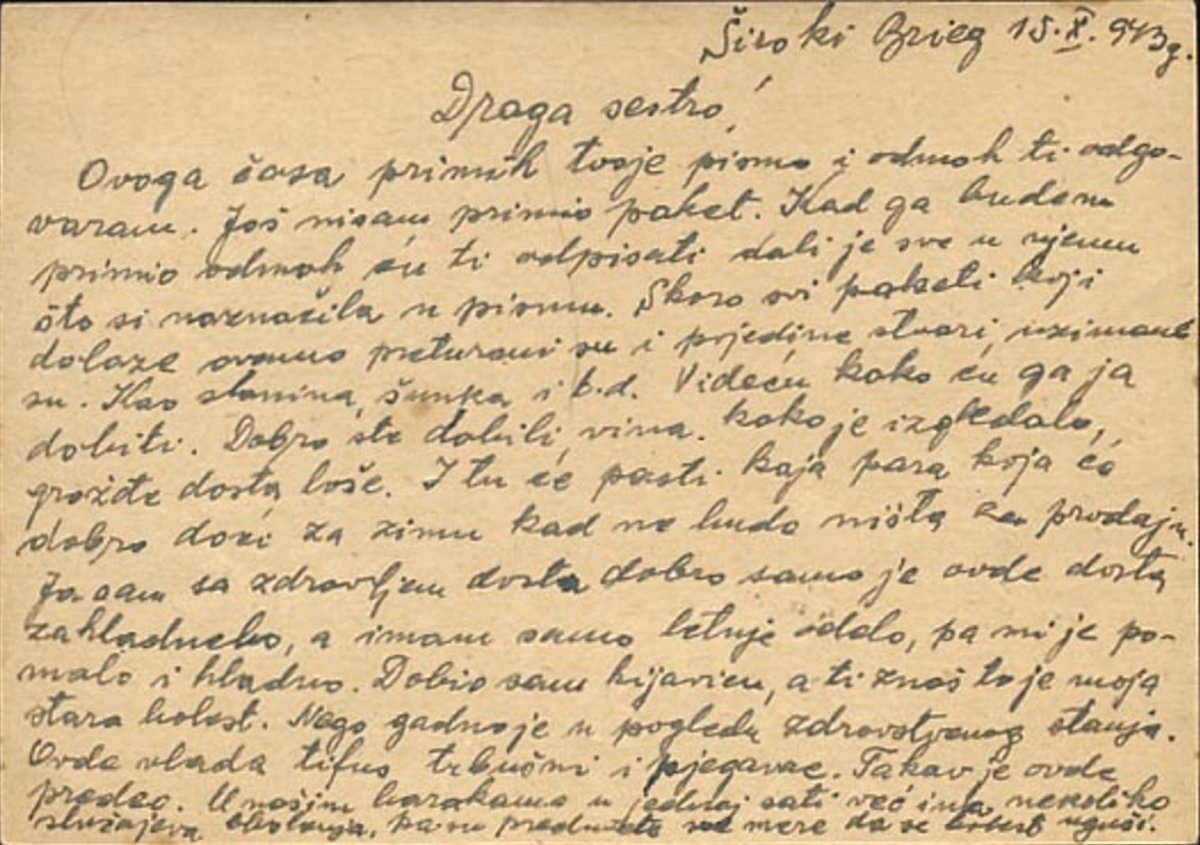 Široki Brieg 15.X.943g.
Draga sestro!
Ovoga časa primih tvoje pismo i odmah ti odgo-
varam. Još nisam primio paket. Kad ga budem
primio odmah ću ti odpisati dali je sve u njemu
što si naznačila u pismu. Skoro svi paketi koji
dolaze ovamo preturani su i pojedine stvari uzimane
su. Kao slanina, šunka i t.d. Videću kako ću ga ja
dobiti. Dobro ste dobili vina. kako je izgledalo,
grožđe dosta loše. I tu će pasti koja para koja će
dobro doći za zimu kad ne bude ništa za prodaju.
Ja sam sa zdravljem dosta dobro samo je ovde dosta
zahladnelo, a imam samo letnje odelo, pa mi je po-
malo i hladno. Dobio sam kijavicu, a ti znaš to je moja
stara bolest. Nego gadno je u pogledu zdravstvenog stanja.
Ovde vlada tifus trbušni i pjegavac. Takav je ovde
predeo. U našim barakama u jednoj sati već ima nekoliko
slučajeva oboljenja, pa su preduzete sve mere da se uguši.